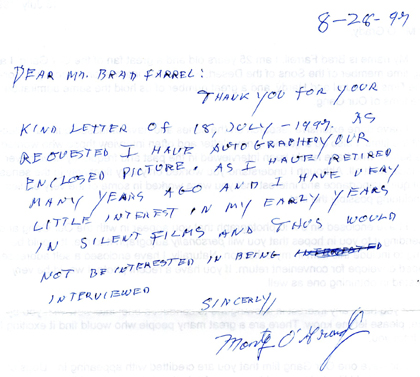 8-28-97
DEAR MR. BRAD FARREL:
THANK YOU FOR YOUR
KIND LETTER OF 18, JULY-1997. AS
REQUESTED I HAVE AUTOGRAPHED YOUR
ENCLOSED PICTURE. AS I HAVE RETIRED
MANY YEARS AGO AND I HAVE VERY
LITTLE INTEREST IN MY EARLY YEARS
IN SILENT FILMS AND THUS WOULD
NOT BE INTERESTED IN BEING
INTERVIEWED
SINCERLY,
Monty O'Grady